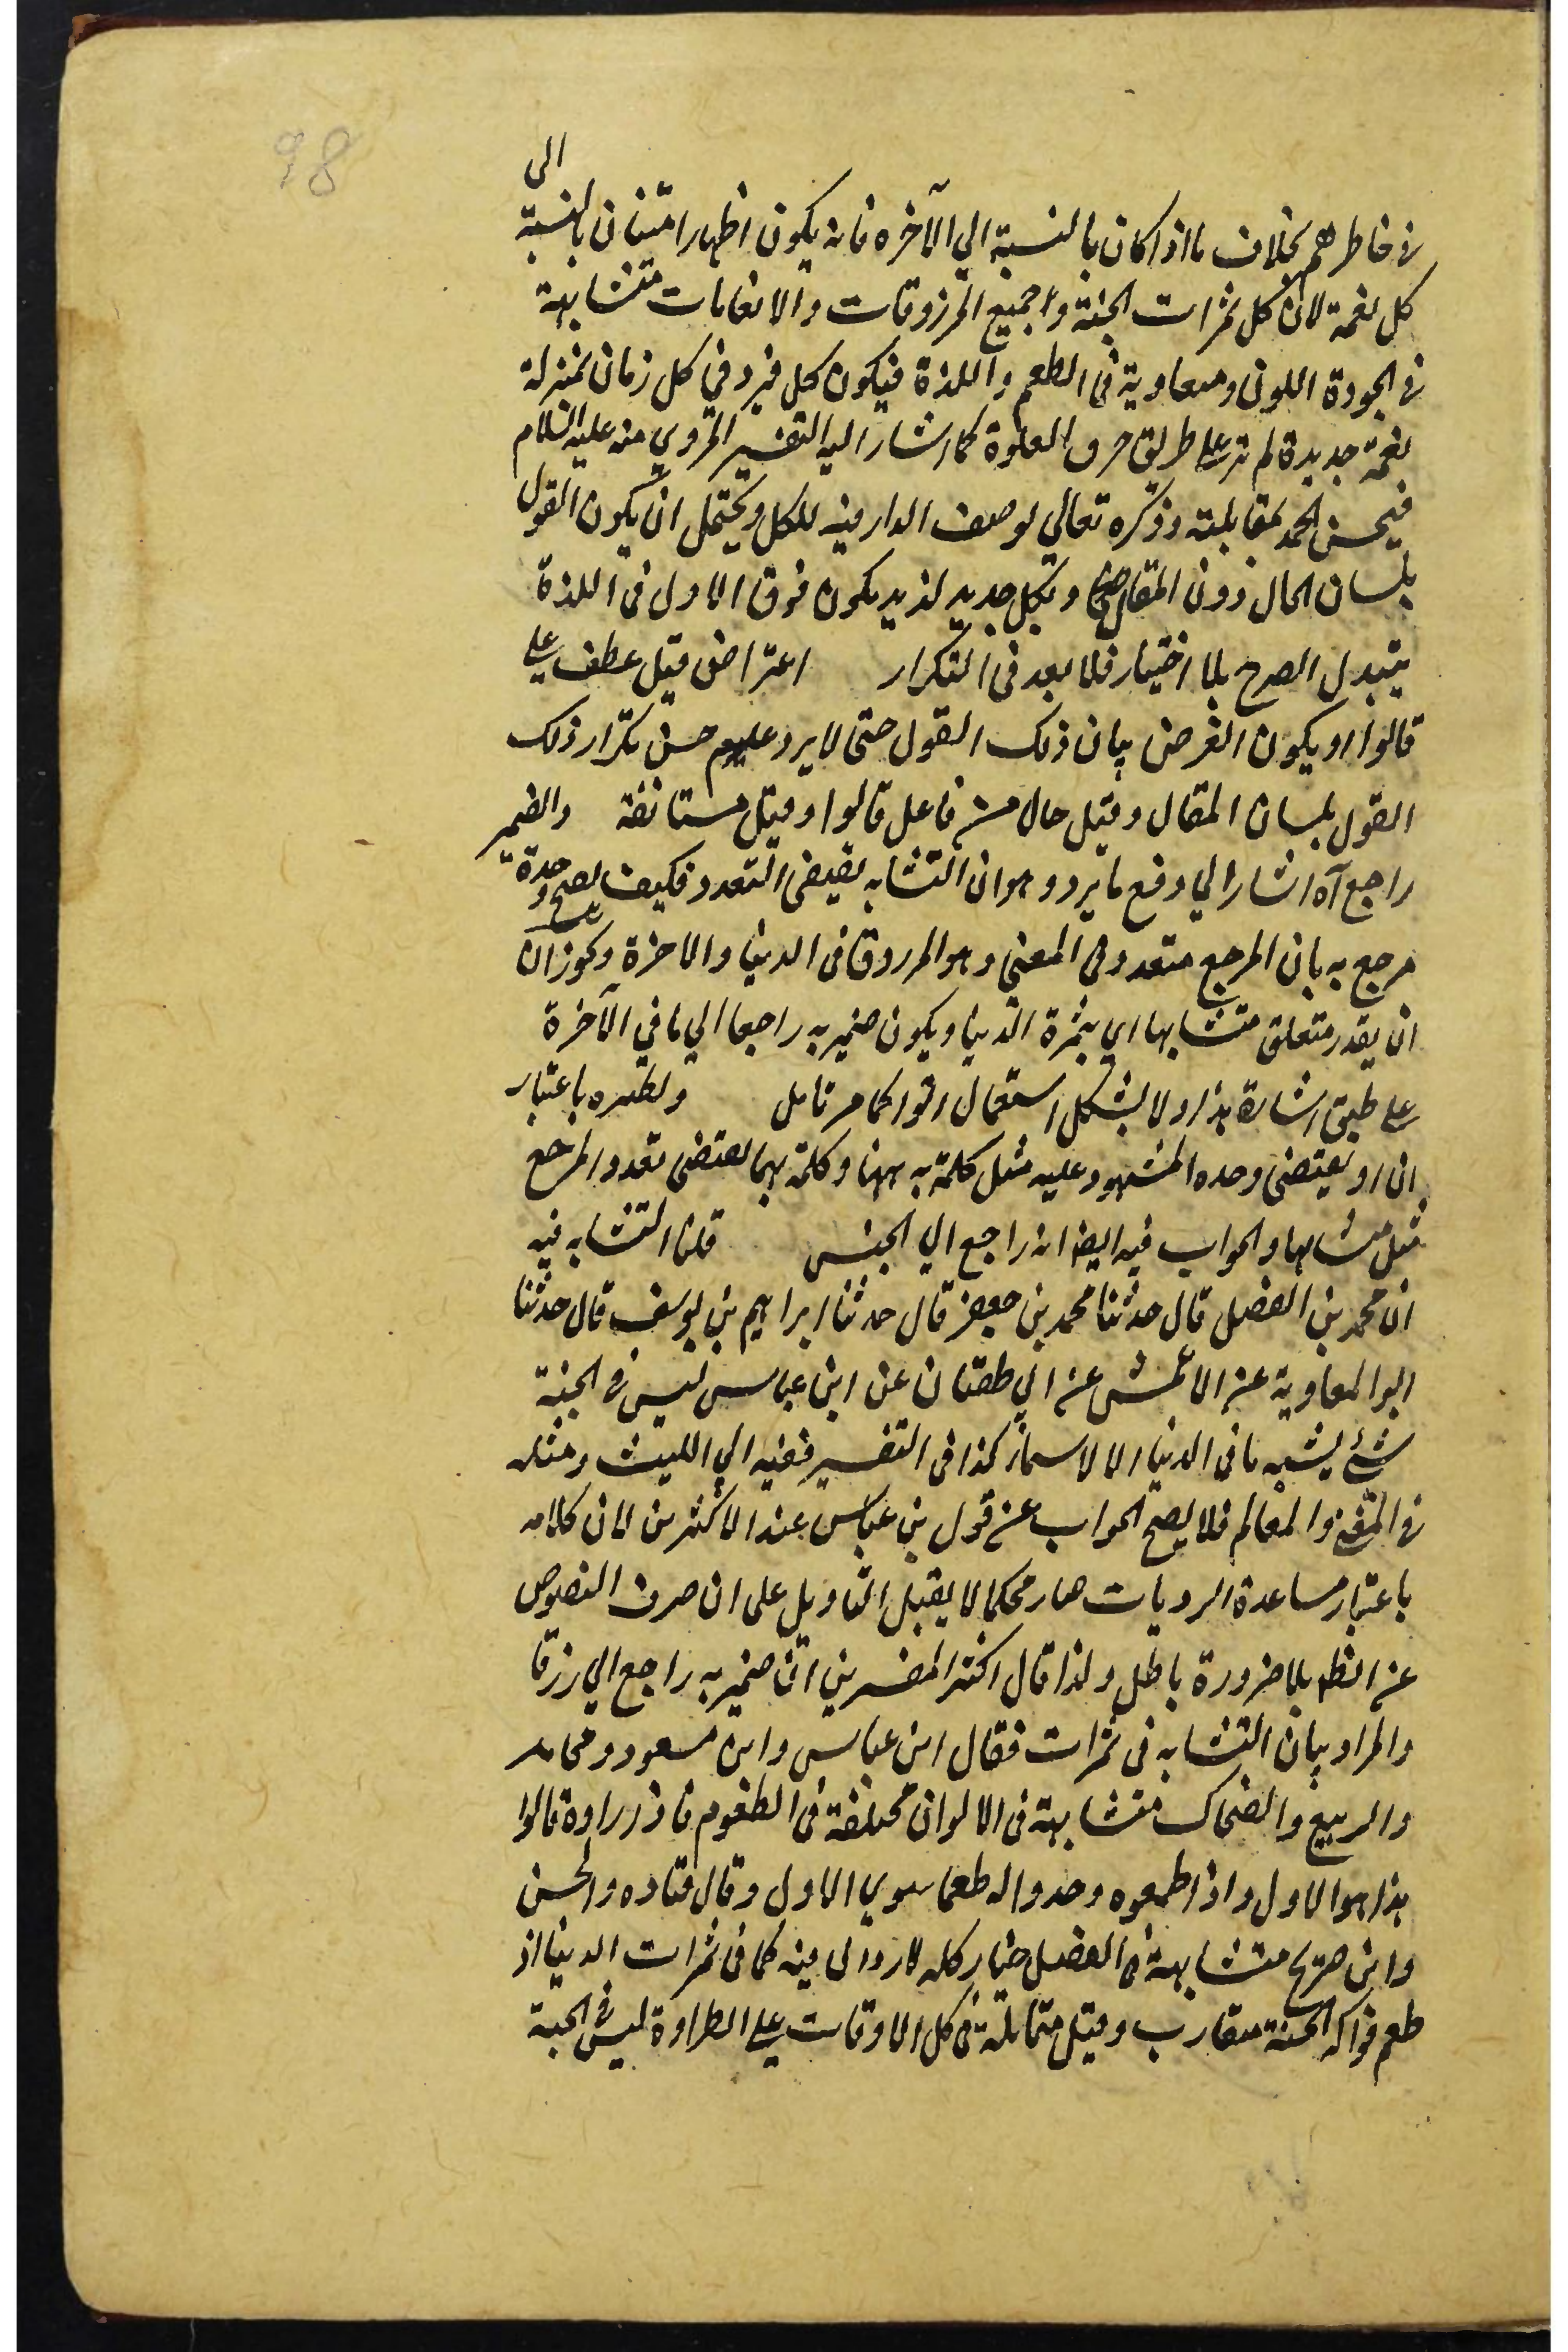 98
الى
فى خاطرهم بخلاف ما اذا كان بالنسبة الي الآخره فانه يكون اظهار امتنان بالنسبة
كل نعمة لان كل ثمرات الجنة واجميع المرزوقات والانعامات متشابهة
فى الجودة اللون ومساوية فى الطعم واللذة فيكون كل فرد في كل زمان بمنزلة
نعمة جديدة لم تر على طريق حرف العلوة كما اشار اليه التفسير المروي منه عليه السلام
فيحسن الحمد بمقابلته وذكره تعالي لوصف الدارينه للكل ويحتمل ان يكون القول
بلسان الحال دون المقال وبكل جديد لذيد يكون فوق الاول فى اللذة
يتبدل المدح بلا اختيار فلا بعد فى التكرار اعتراض قيل عطف على
قالوا او يكون الغرض بيان ذلك القول حتى لا يرد عليهم حسن تكرار ذلك
القول بلسان المقال وقيل حال من فاعل قالوا وقيل مستانفة والضمير
راجع آه اشار الي دفع ما يرد وهو ان التشابه يقيضى التعدد فكيف يصح وحدة
مرجع به بان المرجع متعدد فى المعني وهو المرزوق فى الدنيا والاخرة ويجوز ان
ان يقدر متعلق متشابها اي بثمرة الدنيا ويكون ضمير به راجعا الي ما في الآخرة
على طبق اشارة هذا ولا يشكل استعمال اتوا كما مر تامل ونظيره باعتبار
ان او يقتضى وحده المشهود عليه مثل كلمة به ههنا وكلمة بهما يقتضى تعدد المرجع
مثل متشابها والجواب فيه ايضا انه راجع الي الجنس قلت التشابه فيه
ان محمد بن الفضل قال حدثنا محمد بن جعفر قال حدثنا ابراهيم بن يوسف قال حدثنا
ابو المعاوية عن الاعمش عن ابي ظفتان عن ابن عباس ليس فى الجنة
شئ يشبه ما فى الدنيا الا لاسماء كذا فى التفسير فقيه ابي الليث ومثله
فى المغنى والمعالم فلا يصح الجواب عن قول بن عباس عند الاكثرين لان كلامه
باعتبار مساعدة الرويات صار محكما لا يقبل التاويل على ان صرف النصوص
عن الظ بلا ضرورة باطل ولذا قال اكثر المفسرين ان ضمير به راجع الي رزقا
والمراد بيان التشابه فى ثمرات فقال ابن عباس وابن مسعود ومجاهد
والربيع والضحاك متشابهة فى الالوان مختلفة فى الطعوم فاذا راوه قالوا
هذا هو الاول واذا طعموه وجدوا له طعما سوي الاول وقال قتاده والحسن
وابن جريج متشابهة فى الفضل خيار كله لا رذالى فيه كما فى ثمرات الدنيا اذ
طعم فواكه الجنة متقارب وقيل متماثلة فى كل الاوقات على الطراوة ليس فى الجنة